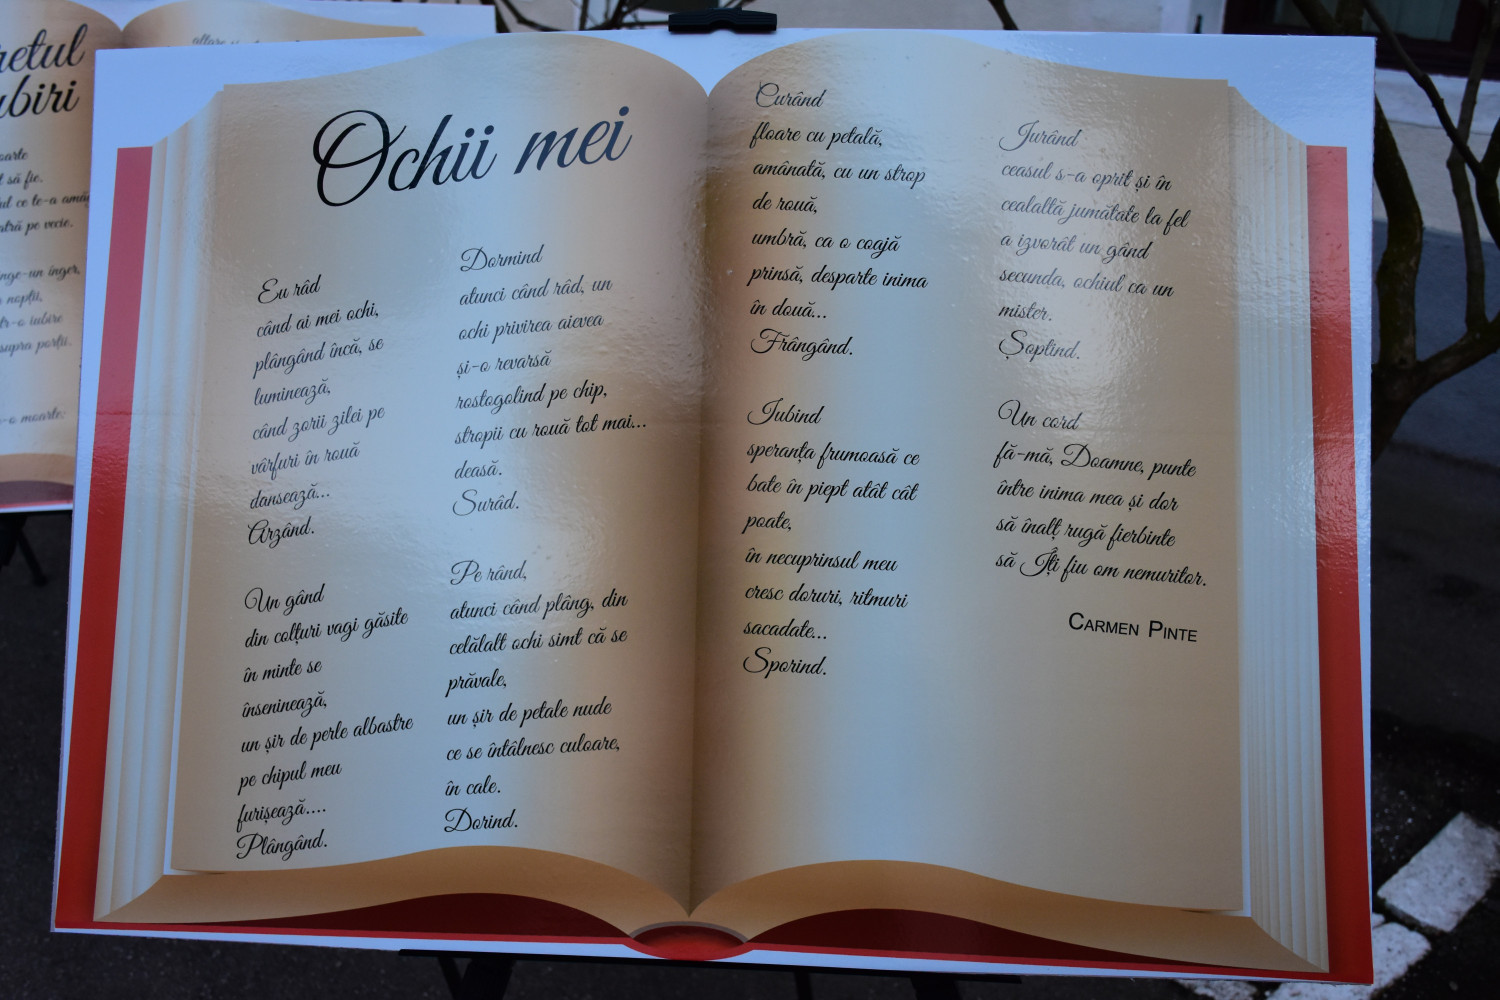 Ochii mei
Eu râd
când ai mei ochi,
plângând încă, se
luminează,
când zorii zilei pe
vârfuri în rouă
dansează...
Arzând.
Un gând
din colțuri vagi găsite
în minte se
înseninează,
un șir de perle albastre
pe chipul meu
furișează....
Plângând.
Dormind
atunci când râd, un
ochi privirea aievea
și-o revarsă
rostogolind pe chip,
stropii cu rouă tot mai...
deasă.
Surâd.
Pe rând,
atunci când plâng, din
celălalt ochi simt că se
prăvale,
un șir de petale nude
ce se întâlnesc culoare,
în cale.
Dorind.
Curând
floare cu petală,
amânată, cu un strop
de rouă,
umbră, ca o coajă
prinsă, desparte inima
în două...
Frângând.
Iubind
speranța frumoasă ce
bate în piept atât cât
poate,
în necuprinsul meu
cresc doruri, ritmuri
sacadate...
Sporind.
Jurând
ceasul s-a oprit și în
cealaltă jumătate la fel
a izvorât un gând
secunda, ochiul ca un
mister.
Șoptind.
Un cord
fă-mă, Doamne, punte
între inima mea și dor
să înalț rugă fierbinte
să Îți fiu om nemuritor.
Carmen Pinte
ubiri
să fie.
ce te-a
pe vecie.
înge-un înger,
nopții,
o iubire
porții.
-o moarte;